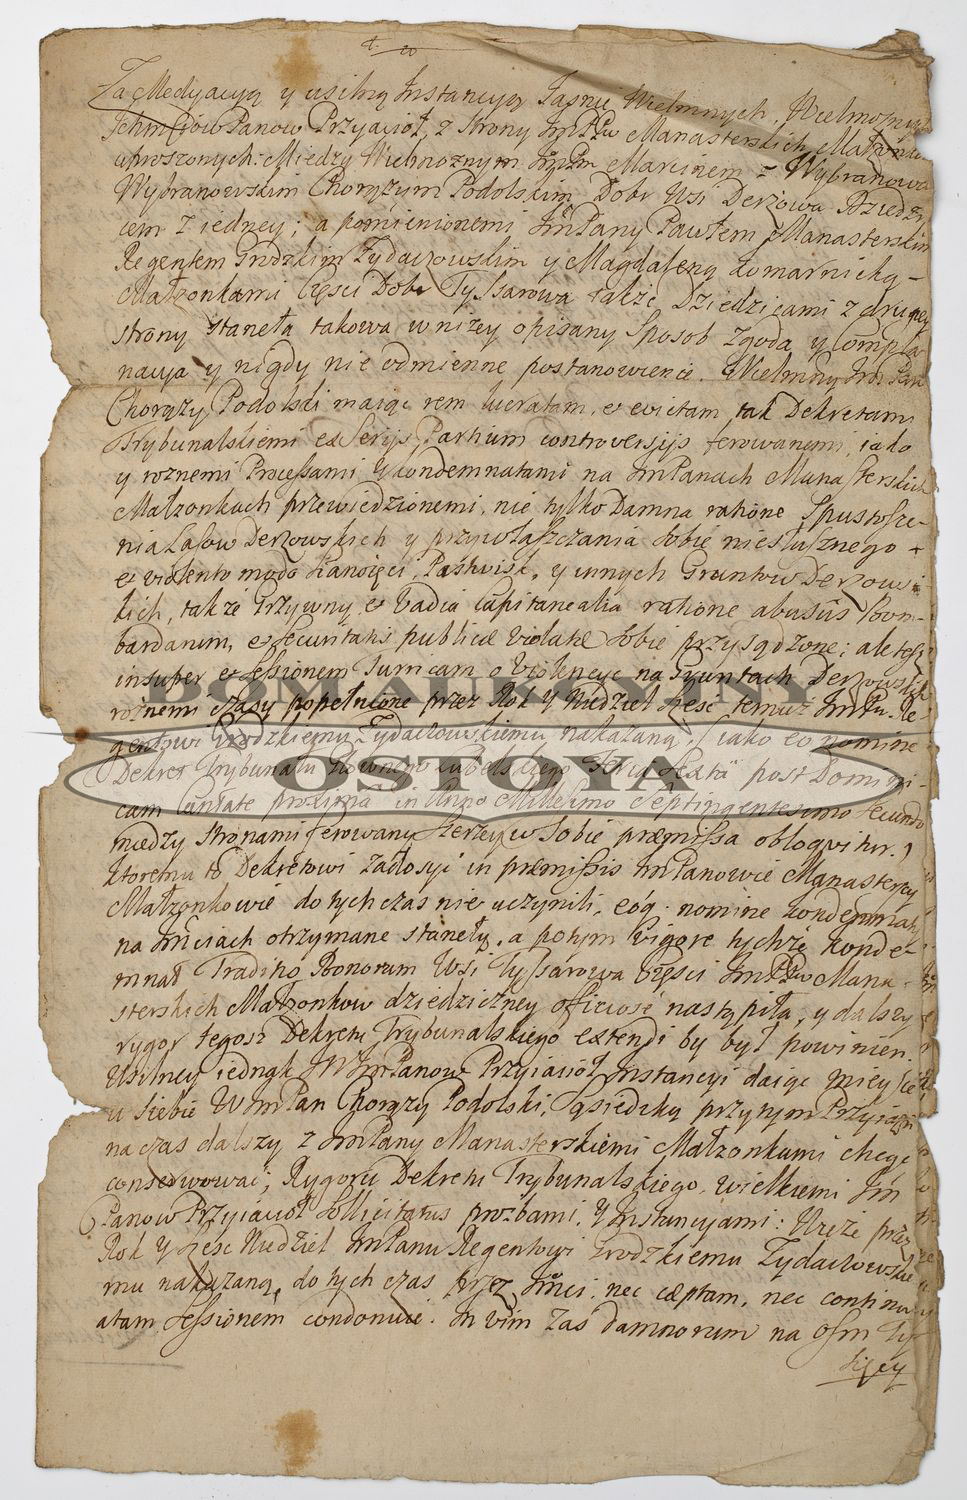 Za Medyacyą y usilną Instancyą Jasnie Wielmnych, Wielmożnych
Jchmściow Panow Przyacioł, z strony ImPPw Manasterskich Małżonkow
uproszonych. Między Wielmożnym ImPm Marcinem z Wybranowa
Wybranowskim Chorążym Podolskim Dobr Wsi Derzowa Dziedzi
cem z iedney; a pomienionemi ImPany Pawłem Manasterskim
Regentem Grodzkim Zydaczowskim y Magdaleną Komarnicką
Małżonkami Części Dobr Tyssarowa także Dziedzicami z drugiey
strony stanęła takowa w niżey opisany Sposob zgoda y Compla
nacya y nigdy nie odmienne postanowienie. Wielmny Im Pan
Chorąży Podolski maiąc rem lucratam, et evictam tak Dekretami
Trybunalskiemi ex Serijs Partium controversijs ferowanemi, iako
y roznemi Processami Kondemnatami na ImPanach Manasterskich
Małżonkach przewiedzionemi, nie tylko Damna ratione Spustosze-
nia Lasow Derzowskich y przywłaszczania sobie niesłusznego
et violento modo Pastwisk, y innych Gruntow Derzow
skich, także Grzywny, et Vadia Capitanealia ratione abusus Bom-
bardarum, et securitatis publicæ violatæ sobie przysądzone; ale też
insuper et Sessionem Turricam o Violencye na Gruntach Derzowskich
roznemi czasy popełnione przez Rok y Niedziel sześć temuż ImPu Re-
gentowi Grodzkiemu Zydaczowskiemu nakazaną, (iako eo nomine
Dekret Trybunału Głownego Lubelskiego Feria Sexta post Domini
cam Cantate proxima in Anno Millesimo Septingentesimo Secundo
między stronami ferowany szerzey w sobie præmissa obloqvitur.)
Ktoremu to Dekretowi zadosyć in præmissis ImPanowie Manasterscy
Małżonkowie do tych czas nie uczynili, eoq. nomine kondemnaty
na Imciach otrzymane stanęły, a potym vigore tychże Konde-
mnat Traditio Bonorum Wsi Tyssarowa Części ImPPw Mana-
sterskich Małżonkow dziedziczney officiose nastąpiła, y dalszy
rygor tegosz Dekretu Trybunalskiego extendi by był powinien.
Usilney iednak WImPanow Przyiacioł Instancyi daiąc mieysce
u siebie WImPan Chorąży Podolski, sąsiedzką przytym Przyiazń
na czas dalszy z ImPany Manasterskiemi Małżonkami chcąc
conserwować, Rygoru Dekretu Trybunalskiego, wielkiemi Im
Panow Przyiacioł sollicitatus prozbami, y Instancyjami: Wieże przez
Rok y szesc Niedziel ImPanu Regentowi Grodzkiemu Zydaczowskie
mu nakazaną, do tych czas przez Imci nec cæptam, nec continu
atam Sessionem condonuie. In vim zas damnorum na osm Ty
sięcy